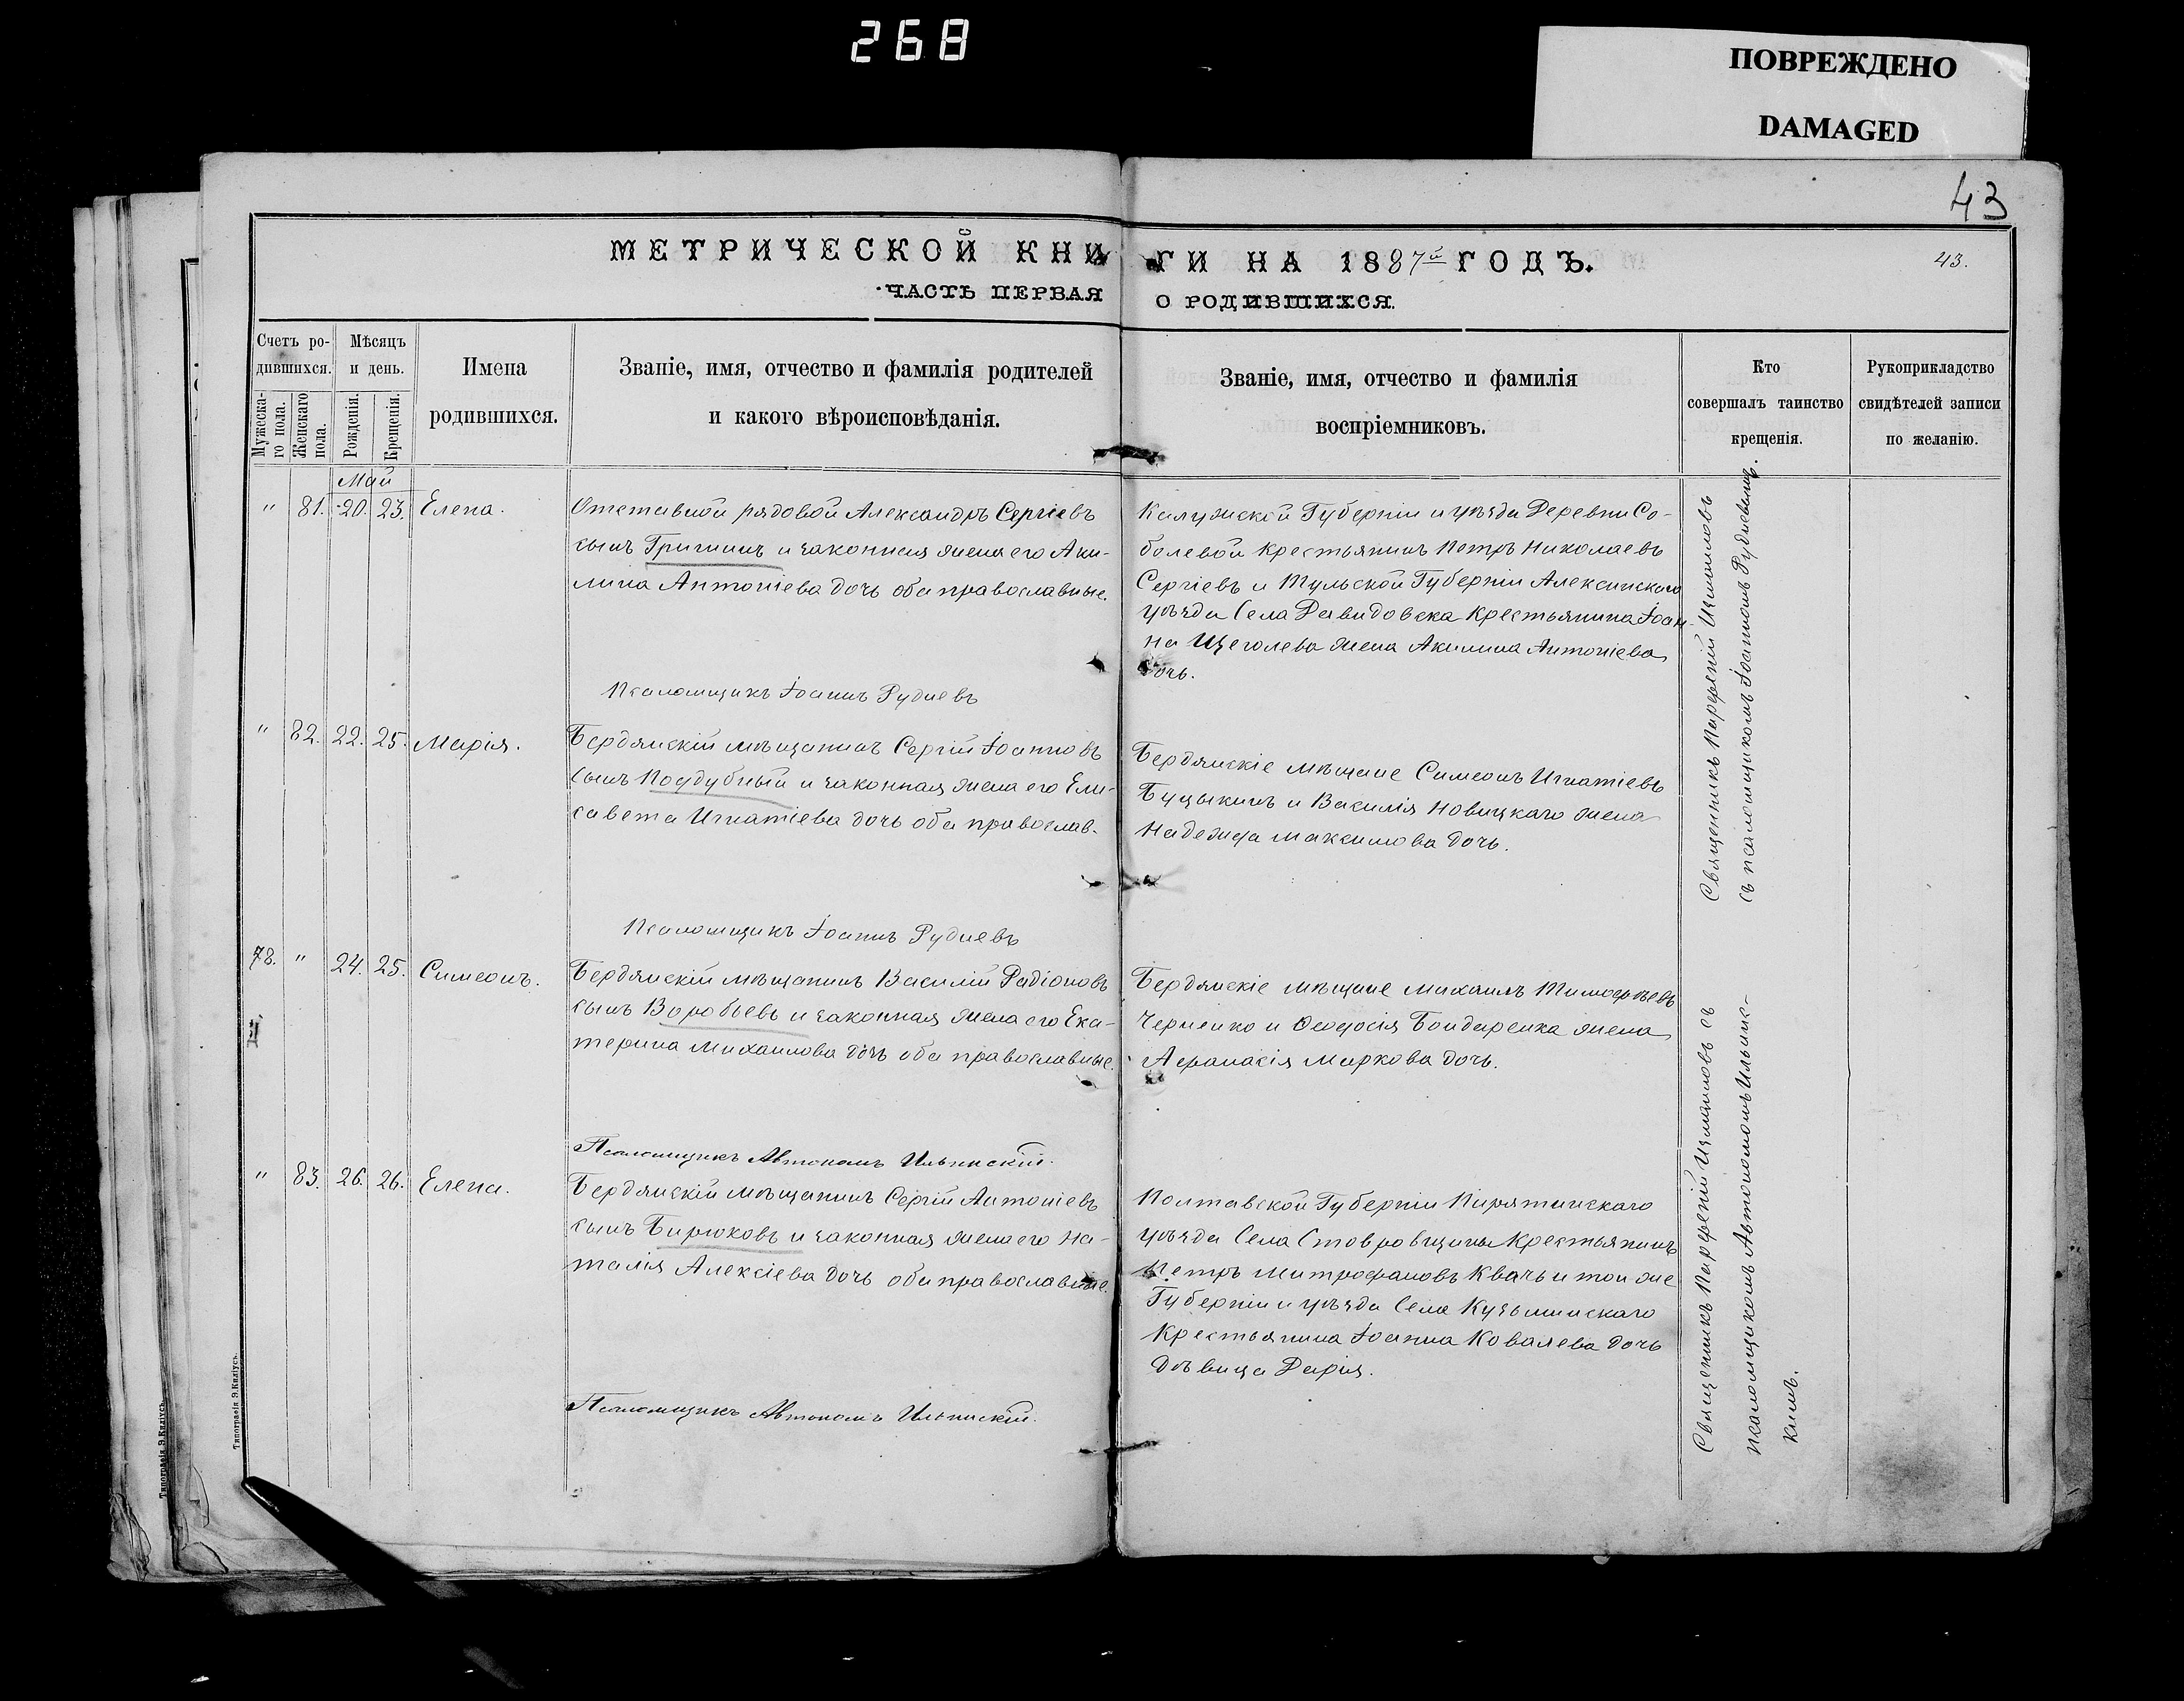 268
ПОВРЕЖДЕНО
DAMAGED
43
МЕТРИЧЕСКОЙ КНИ
ГИ НА 1887й ГОДЪ.
43.
ЧАСТЬ ПЕРВАЯ
О РОДИВШИХСЯ.
Счетъ ро-
дившихся.
Мужеска-
го пола.
Женскаго
пола.
Мѣсяцъ
и день.
Рожденія.
Крещенія.
Имена
родившихся.
Званіе, имя, отчество и фамилія родителей
и какого вѣроисповѣданія.
Званіе, имя, отчество и фамилія
воспріемниковъ.
Кто
совершалъ таинство
крещенія.
Рукоприкладство
свидѣтелей записи
по желанію.
Май
" 81. 20. 23. Елена.
Отставной рядовой Александръ Сергіевъ
сынъ Гришинъ и законная жена его Аки-
лина Антоніева дочь оба православные.
Калужской Губерніи и уѣзда Деревни Со-
болевой Крестьянинъ Петръ Николаевъ
Сергіевъ и Тульской Губерніи Алексинскаго
уѣзда Села Давидовска Крестьянина Іоан-
на Щеголева жена Акилина Антоніева
дочь.
Псаломщикъ Іоаннъ Рудневъ
" 82. 22. 25. Марія.
Бердянскій мѣщанинъ Сергій Іоанновъ
сынъ Поддубный и законная жена его Ели-
савета Игнатіева дочь оба православ.
Бердянскіе мѣщане Симеонъ Игнатіевъ
Буцыкинъ и Василія Новицкаго жена
Надежда Максимова дочь.
Псаломщикъ Іоаннъ Рудневъ
Священникъ Парѳеній Измаиловъ
съ псаломщикомъ Іоанномъ Рудневымъ.
78. " 24. 25. Симеонъ.
Бердянскій мѣщанинъ Василій Радіоновъ
сынъ Воробьевъ и законная жена его Ека-
терина Михаилова дочь оба православные.
Бердянскіе мѣщане Михаилъ Тимофѣевъ
Черненко и Ѳеодосія Бондаренка жена
Афанасія Маркова дочь.
Псаломщикъ Автономъ Ильинскій.
" 83. 26. 26. Елена.
Бердянскій мѣщанинъ Сергій Антоніевъ
сынъ Бирюковъ и законная жена его На-
талія Алексіева дочь оба православные.
Полтавской Губерніи Пирятинскаго
уѣзда Села Стовровщины Крестьянинъ
Петръ Митрофановъ Квачъ и той же
Губерніи и уѣзда Села Кузьминскаго
Крестьянина Іоанна Ковалева дочь
дѣвица Дарія.
Псаломщикъ Автономъ Ильинскій.
Священникъ Парѳеній Измаиловъ съ
псаломщикомъ Автономомъ Ильинс-
кимъ.
Типографія Э.Киліусъ.
Типографія Э.Киліусъ.